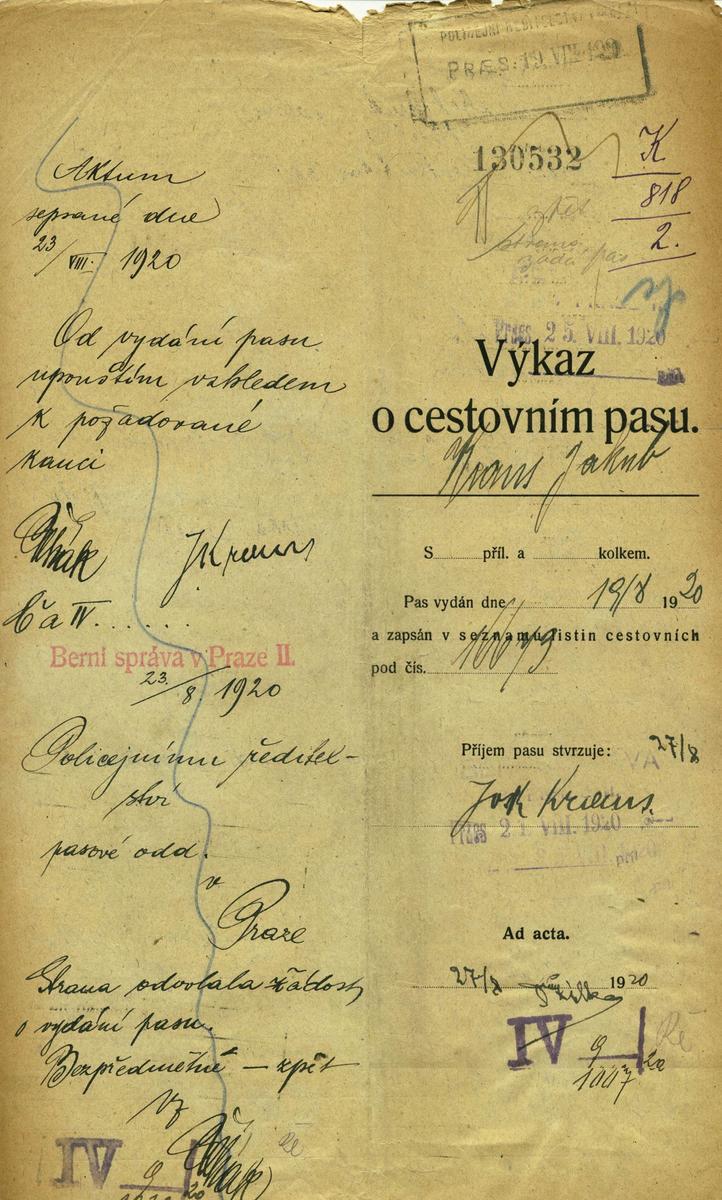 Aktum
sepsané dne
23/VIII. 1920
Od vydání pasu
upouštím vzhledem
k požadované
kauci
JKraus
Ča IV......
Berní správa v Praze II.
23./8. 1920
Policejnímu ředitel-
ství
pasové odd.
v
Praze
Strana odvolala žádost
o vydání pasu.
Bezpředmětné — zpět
IV
9
20
PRÆS: 19. VIII. 1920
130532
K
818
2.
žádá pas
Praes 25. VIII. 1920
Výkaz
o cestovním pasu.
Kraus Jakub
S příl. a kolkem.
Pas vydán dne 19/8 1920
a zapsán v seznamu listin cestovních
pod čís. 16673
Příjem pasu stvrzuje: 27/8
Kraus.
Praes 21. VIII. 1920
Ad acta.
27/8 1920
IV 9
1007 20